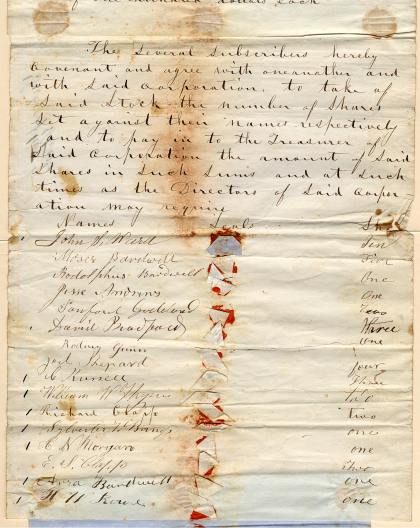 of one hundred dollars each
The Several Subscribers hereby
Covenant and agree with oneanother and
with Said Corporation, to take of
Said Stock the number of Shares
Set against their names respectively
and to pay in to the Treasurer of
Said Corporation the amount of Said
Shares in Such Sums and at Such
times as the Directors of Said Corpor
ation may require
Names Seals Sh
1 John S. Ten
Moses Bardwell Five
Rodolphus Bardwell One
Jesse Andrews one
Sanford Two
1 David Three
Rodney Gunn one
Joel Shepard four
1 C Three
1 William W. two
1 Richard Clapp two
1 Sylvester one
1 C N Morgan one
E. S. Clapp Two
1 Bardwell one
1 H W one